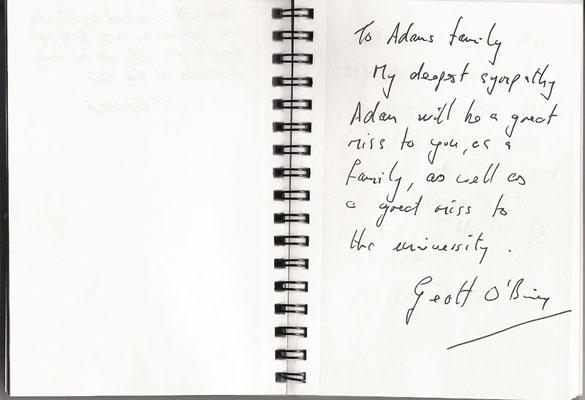 To Adams family
My deepest sympathy
Adam will be a great
miss to you, as a
family, as well as
a great miss to
the university.
Geoff